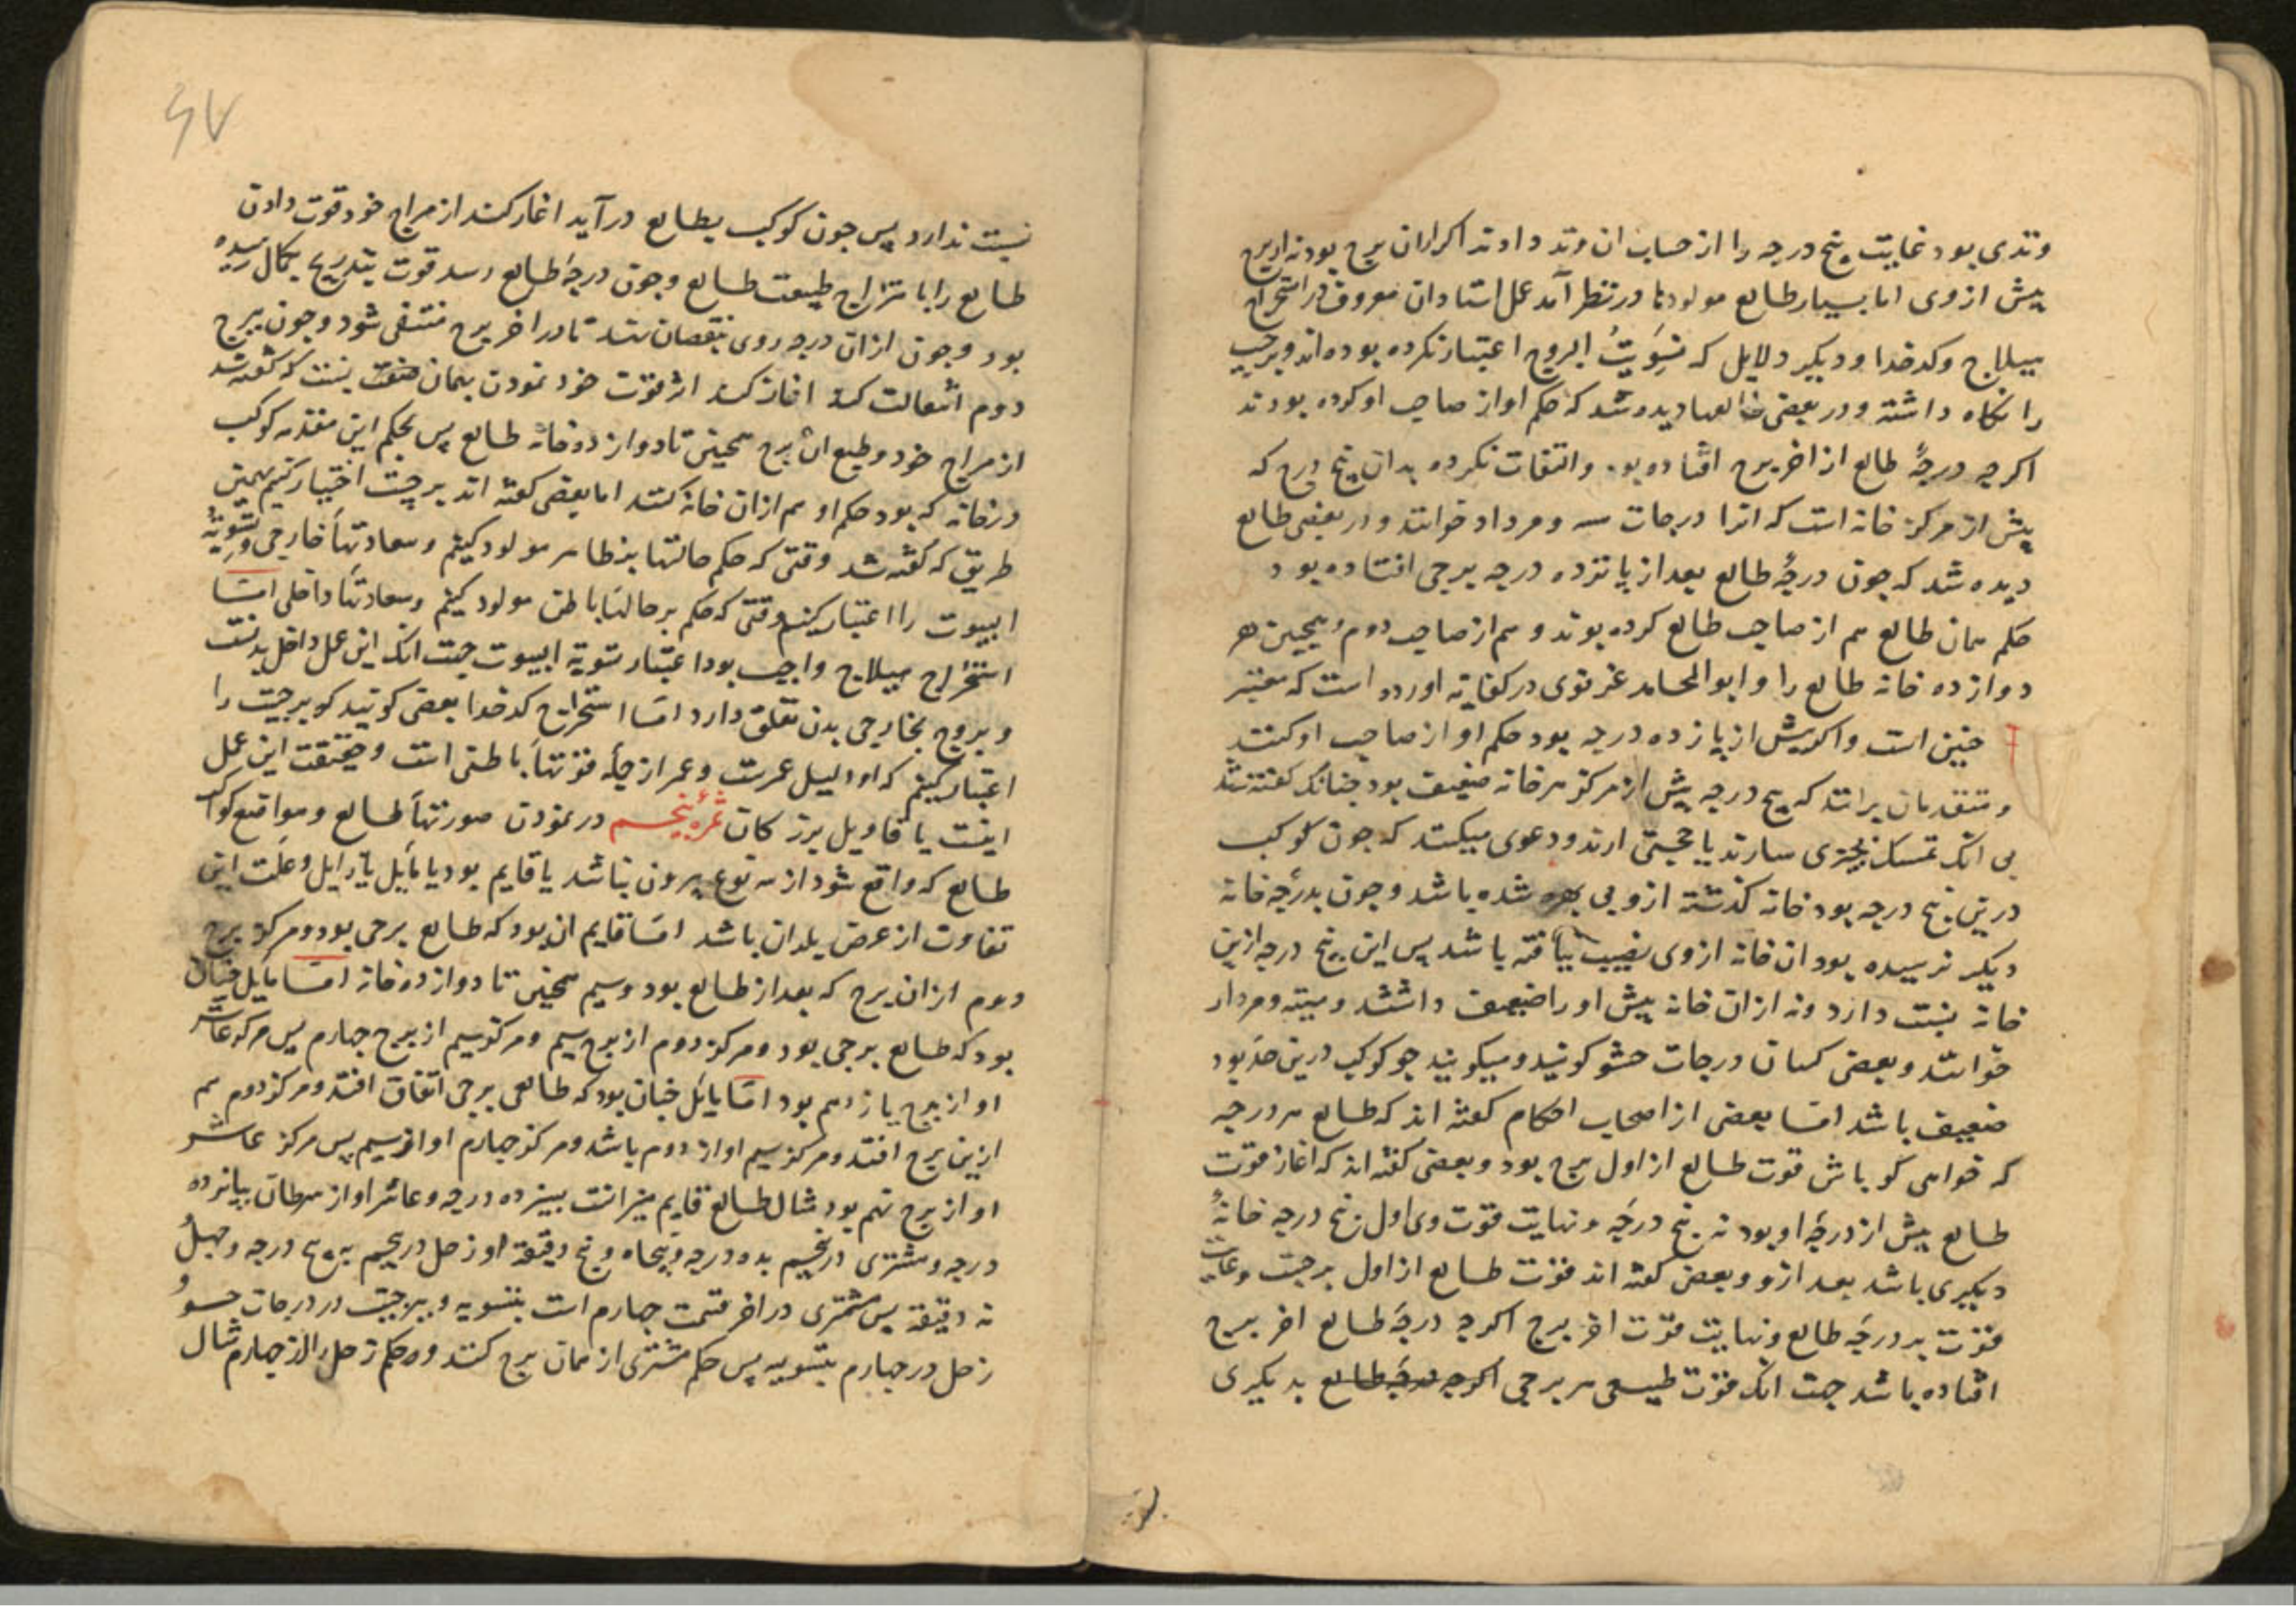 وتدی بود غایت پنج درجه را از حساب ان وتد دادند اکر ازان برج بود نه ازین برج
پیش از وی اما بسیار طالع مولودها در نظر آمد عمل استادان معروف در استخراج
هیلاج وکدخدا ودیکر دلایل که تسویت البروج اعتبار نکرده بوده اند وبرجیت
را نکاه داشته ودر بعضی طالعها دیده شد که حکم او از صاحب او کرده بودند
اکرچه درجهٔ طالع از اخر برج افتاده بود والتفات نکرده بدان پنج درج که
پیش از مرکز خانه است که انرا درجات ومردار خوانند ودر بعضی طالع
دیده شد که چون درجهٔ طالع بعد از پانزده درجه برجی افتاده بود
حکم همان طالع هم از صاحب طالع کرده بودند وهم از صاحب دوم وهمچنین هر
دوازده خانه طالع را وابو المحامد غزنوی در کفایه اورده است که معتبر
چنین است واکر پیش از پانزده درجه بود حکم او از صاحب او کنند
ومتقدمان برانند که پنج درجه پیش از مرکز هر خانه ضعیف بود چنانک کفته شد
بی انک تمسک بچیزی سازند یا حجتی ارند ودعوی میکنند که چون کوکب
درین پنج درجه بود خانه کذشته ازو بی بهره شده باشد وچون بدرجه خانه
دیکر نرسیده بود ان خانه ازوی نصیب نیافته باشد پس این پنج درجه ازین
خانه نسبت دارد ونه ازان خانه پیش او را ضعیف داشتند ومیته ومردار
خوانند وبعضی کسان درجات حشو کویند ومیکویند چو کوکب درین حد بود
ضعیف باشد امّا بعضی از اصحاب احکام کفته اند که طالع هر درجه
که خواهی کو باش قوت طالع از اول برج بود وبعضی کفته اند که اغاز قوت
طالع پیش از درجه او بود نه پنج درجه ونهایت قوت وی اول پنج درجه خانهٔ
دیکیری باشد بعد ازو وبعضی کفته اند قوت طالع از اول برجست وغایت
قوت بر درجه طالع ونهایت قوت اخر برج اکرچه درجه طالع اخر برج
افتاده باشد جهت انک قوت طبیعی هر برجی اکرچه درجه طالع بدیکیری
نسبت ندارد پس چون کوکب بطالع در آید اغاز کند از مزاج خود قوت دادن
طالع را بامتزاج طبیعت طالع وچون درجهٔ طالع رسد قوت بتدریج بکمال رسیده
بود وچون ازان درجه روی بنقصان نهد تا در اخر برج منتفی شود وچون ببرج
دوم انتقالت کند اغاز کند اثر قوت خود نمودن بهمان صفت نسبت که کفته شد
از مزاج خود وطبع ان برج همچنین تا دوازده خانه طالع پس بحکم این مقدمه کوکب
در خانه که بود حکم او هم ازان خانه کنند اما بعضی کفته اند برجیت اختیار کنیم بهمین
طریق که کفته شد وقتی که حکم حالتها بظاهر مولود کنیم وسعادتهاء خارجی وتسویهٔ
البیوت را اعتبار کنیم وقتی که حکم بر حالتهاء باطن مولود کنیم وسعادتهاء داخلی امّا
استخراج هیلاج واجب بود اعتبار تسویه البیوت جهت انک این عمل داخل بدنست
وبروج بخارجی بدن تعلق دارد امّا استخراج کدخدا بعضی کویند کو برجیت را
اعتبار کنیم که او دلیل عمرست وعمر از جمله قوتهاء باطنی است وحقیقت این عمل
اینست یا قاویل بزرکان ثمرهٔ پنجم در نمودن صورتهاء طالع ومواقع کواکب
طالع که واقع شود از سه نوع بیرون نباشد یا قایم بود یا مایل یا زایل وعلت این
تفاوت از عرض بلدان باشد امّا قایم ان بود که طالع برجی بود ومرکز برج
دوم ازان برج که بعد از طالع بود وسیم همچنین تا دوازده خانه امّا مایل چنان
بود که طالع برجی بود ومرکز دوم از برج سیم ومرکز سیم از برج چهارم پس مرکز عاشر
او از برج یازدهم بود امّا زایل چنان بود که طالعی برجی اتفاق افتد ومرکز دوم هم
ازین برج افتد ومرکز سیم او از دوم باشد ومرکز چهارم او از سیم پس مرکز عاشر
او از برج نهم بود مثال طالع قایم میزانست بسیزده درجه وعاشر او از سرطان بپانزده
درجه ومشتری در پنجم بده درجه وپنجاه وپنج دقیقه او زحل در پنجم به پنج درجه وچهل
نه دقیقه پس مشتری در اخر قسمت چهارم است بتسویه وببرجیت در درجات حشو
زحل در چهارم بتسویه پس حکم مشتری از همان برج کنند وحکم زحل از چهارم مثال